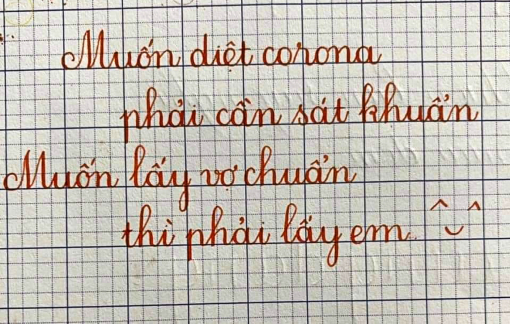 Muốn diệt corona
phải cần sát khuẩn
Muốn lấy vợ chuẩn
thì phải lấy em ^‿^